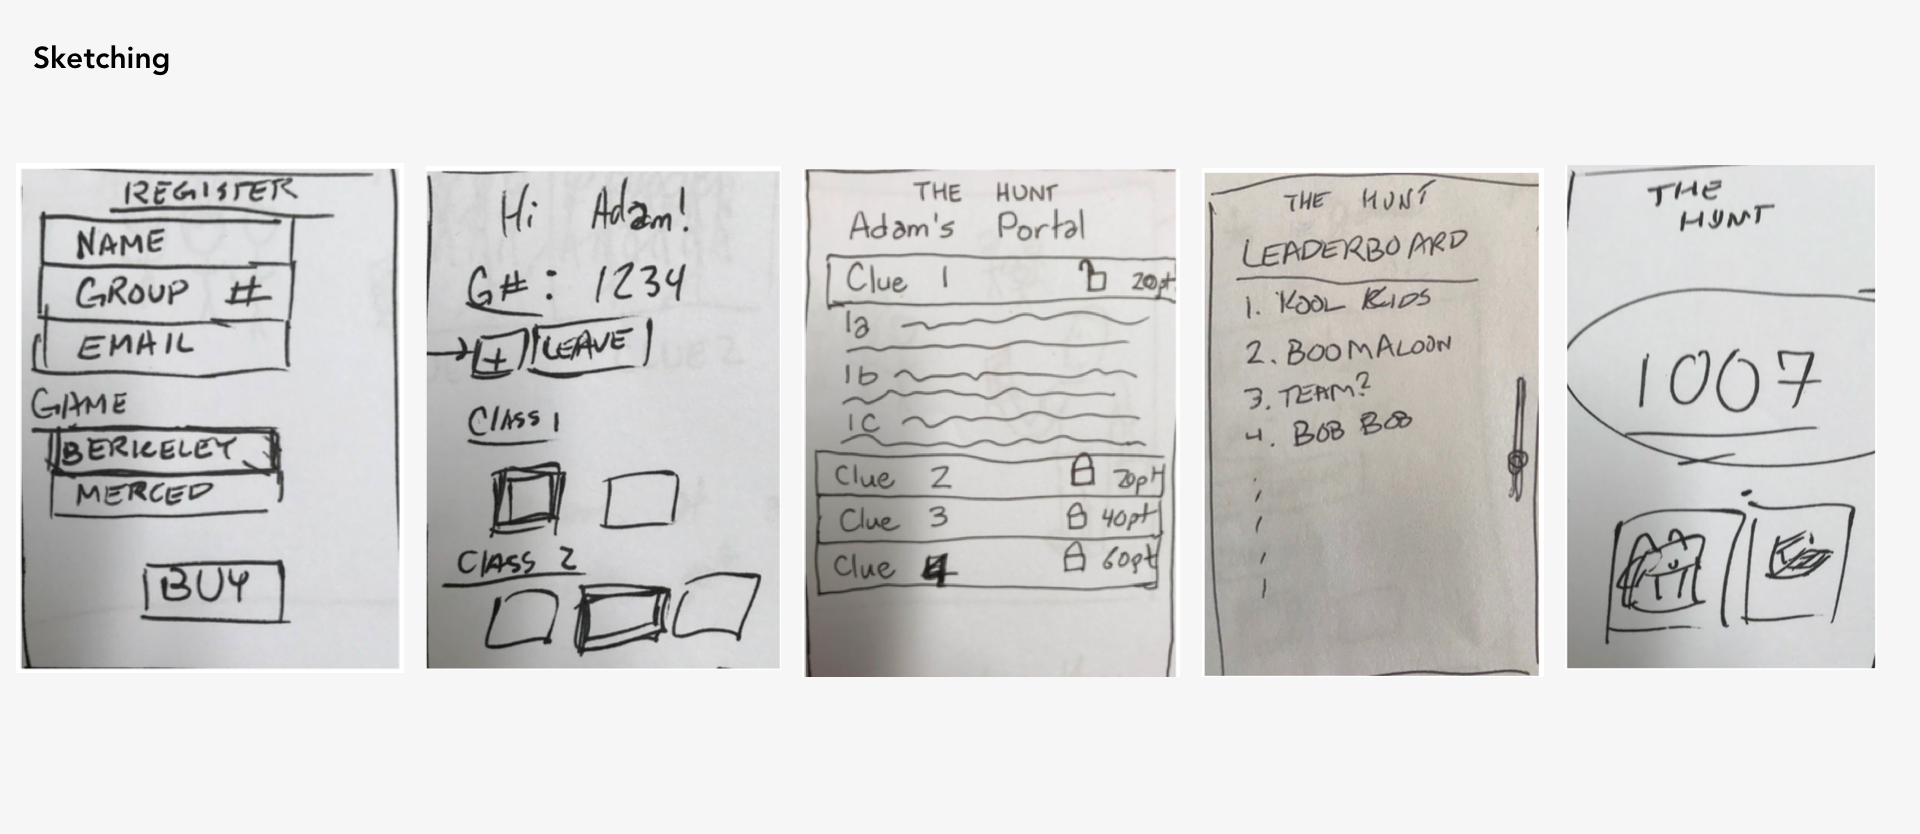 Sketching
REGISTER
NAME
GROUP #
EMAIL
GAME
BERKELEY
MERCED
BUY
Hi Adam!
G#: 1234
+ LEAVE
CLASS 1
CLASS 2
THE HUNT
Adam's Portal
Clue 1 20pt
1a
1b
1c
Clue 2 20pt
Clue 3 40pt
Clue 4 60pt
THE HUNT
LEADERBOARD
1. KOOL KIDS
2. BOOMALOON
3. TEAM?
4. BOB BOB
THE
HUNT
1007